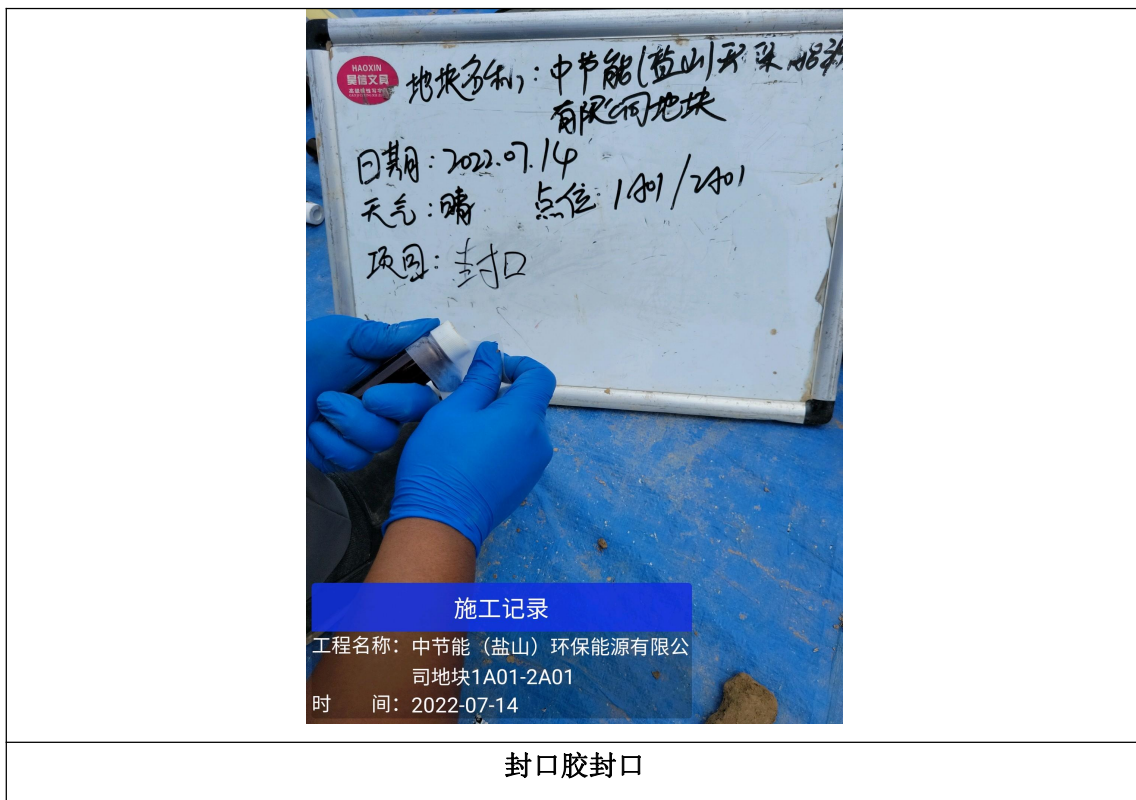 HAOXIN
昊信文具
地块名称：中节能(盐山)环保能源
有限公司地块
日期：2022.07.14
天气：晴 点位：1A01/2A01
项目：封口
施工记录
工程名称：中节能（盐山）环保能源有限公
司地块1A01-2A01
时 间：2022-07-14
封口胶封口